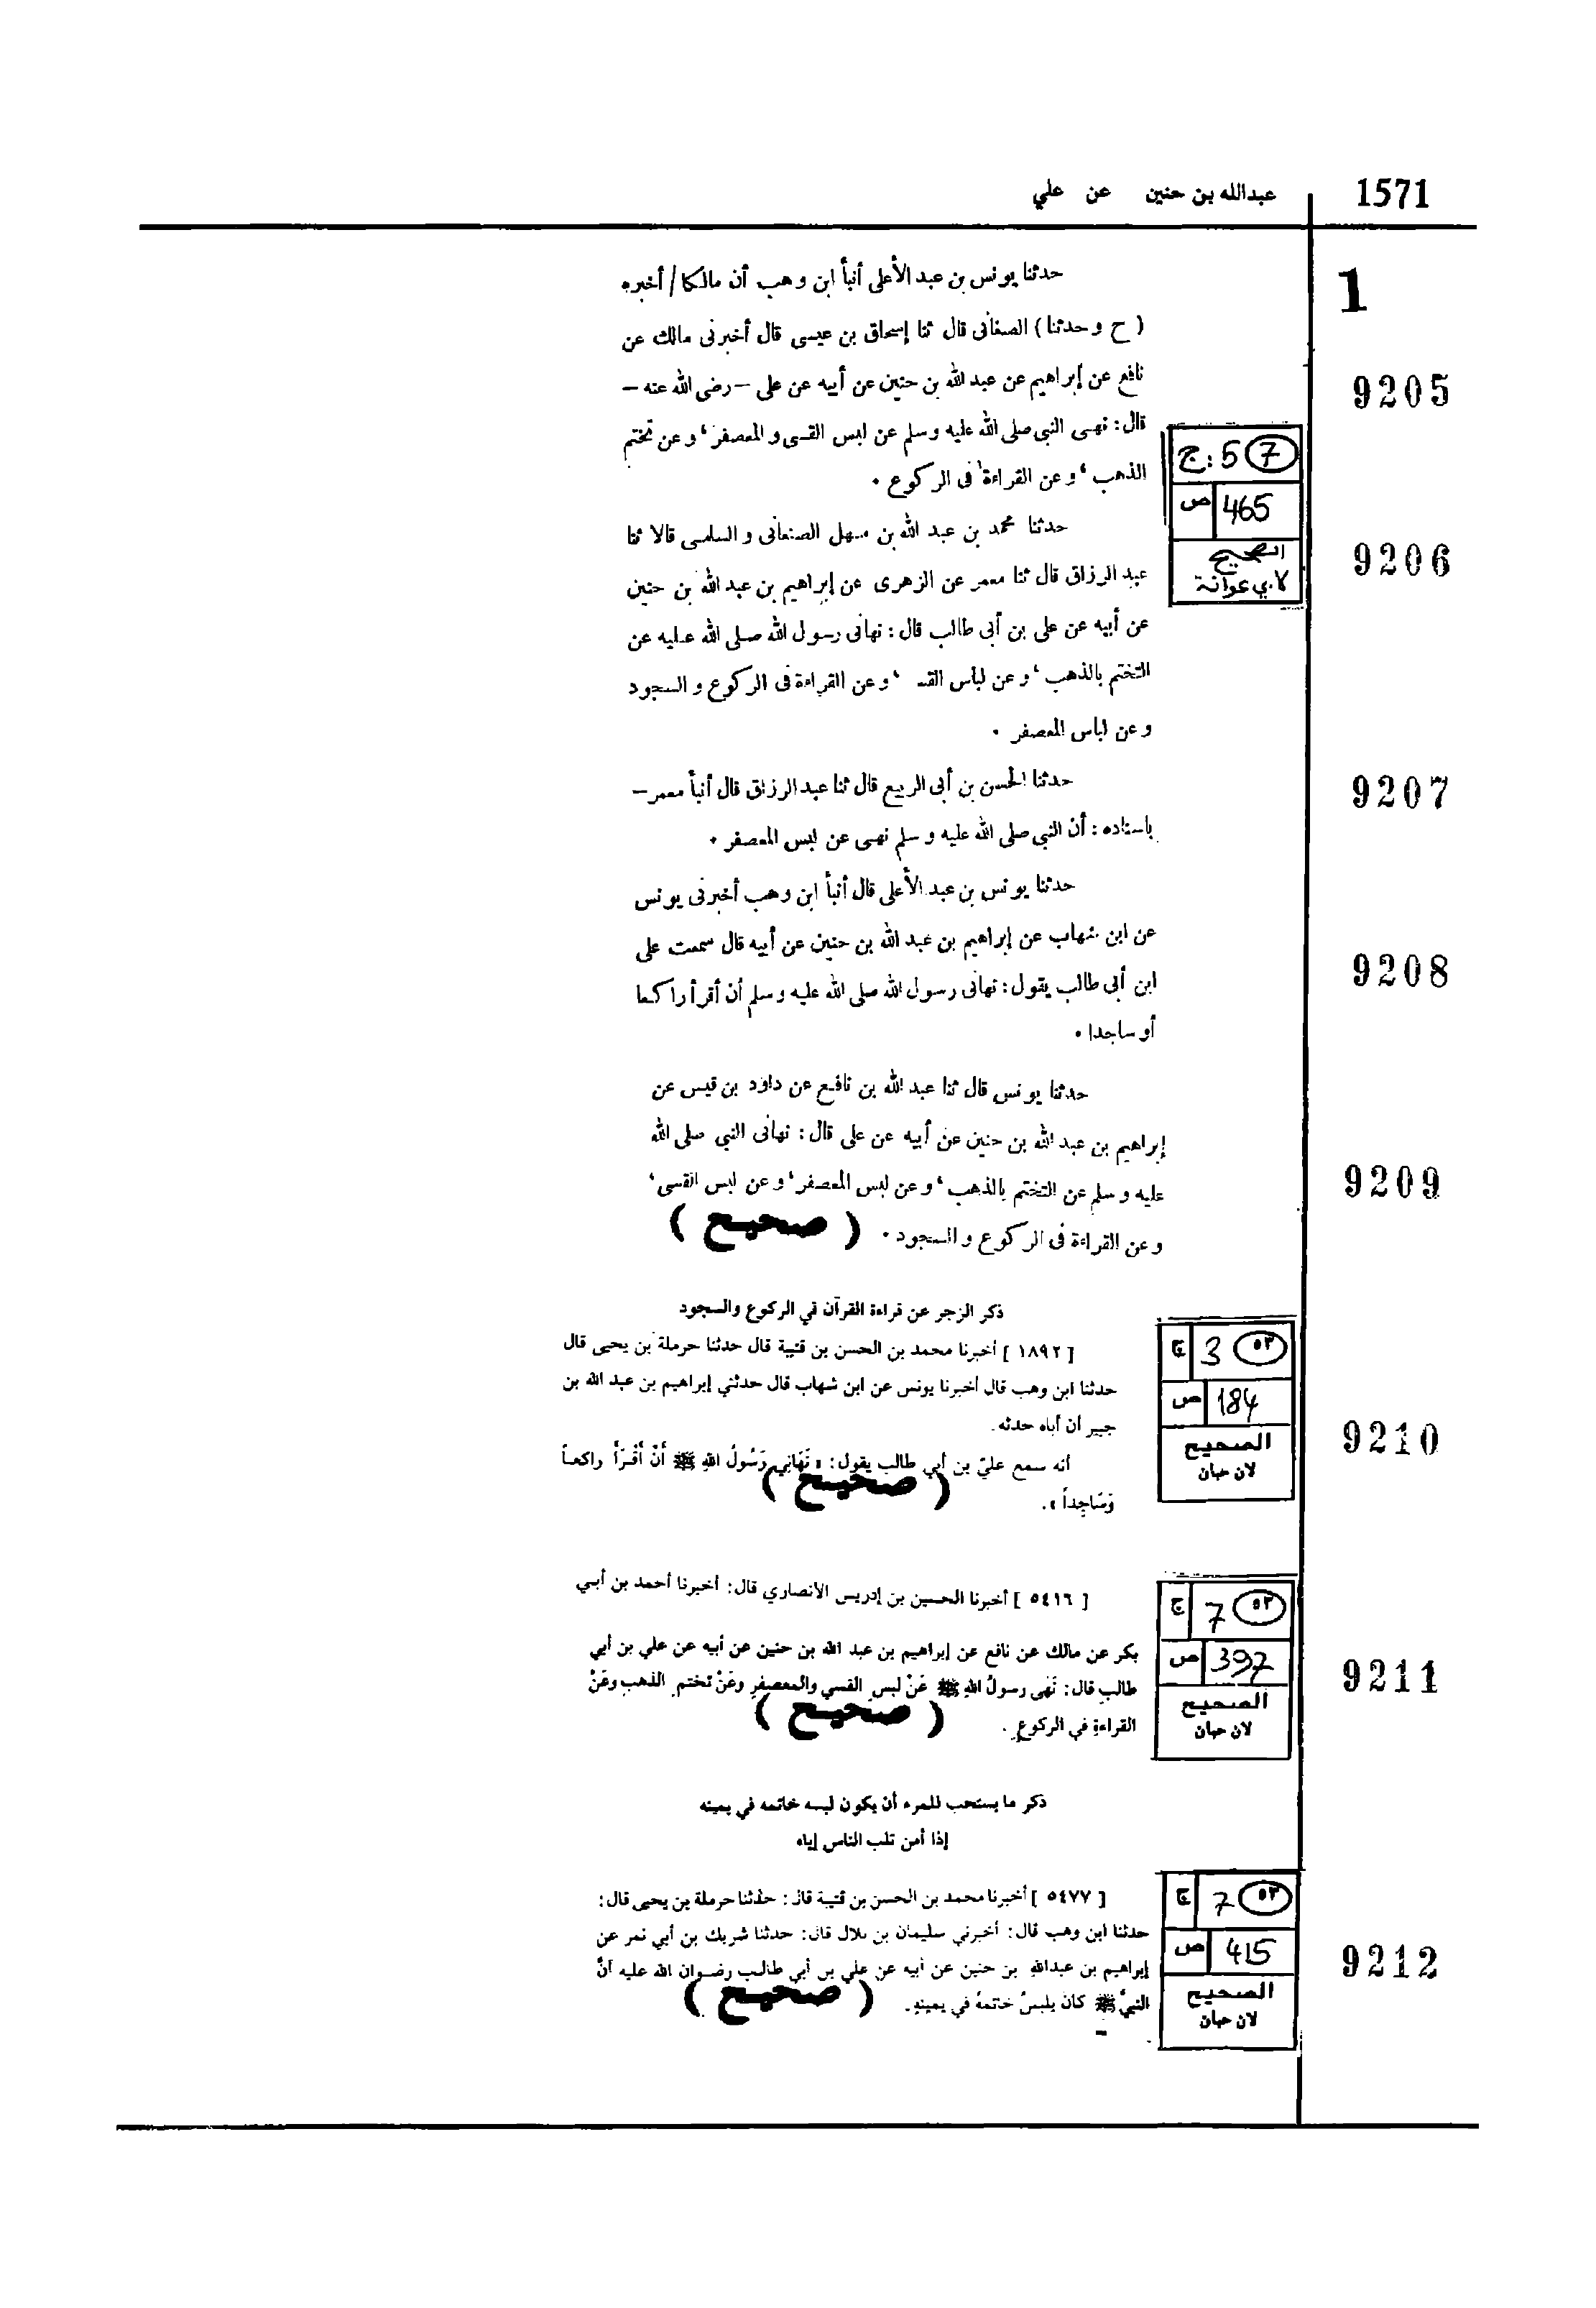 1571
عبدالله بن حنين عن علي
1
حدثنا يونس بن عبد الأعلى أنبأ ابن وهب أن مالكا / أخبره
( ح وحدثنا ) الصغانى قال ثنا إسحاق بن عيسى قال أخبرنى مالك عن
نافع عن إبراهيم عن عبد الله بن حنين عن أبيه عن على – رضى الله عنه –
9205
قال : نهى النبي صلى الله عليه وسلم عن لبس القسى و المعصفر ، و عن تختم
الذهب ، و عن القراءة فى الركوع .
7 5 : ج
465 ص
الصحيح
لابي عوانة
حدثنا محمد بن عبد الله بن مهل الصنعانى و السلمى قالا ثنا
9206
عبد الرزاق قال ثنا معمر عن الزهرى عن إبراهيم بن عبد الله بن حنين
عن أبيه عن على بن أبى طالب قال : نهانى رسول الله صلى الله عليه عن
التختم بالذهب ، و عن لباس القسـ ، و عن القراءة فى الركوع و السجود
و عن لباس المعصفر .
حدثنا الحسن بن أبى الربيع قال ثنا عبد الرزاق قال أنبأ معمر –
9207
باسناده : أن النبي صلى الله عليه و سلم نهى عن لبس المعصفر .
حدثنا يونس بن عبد الأعلى قال أنبأ ابن وهب أخبرنى يونس
عن ابن شهاب عن إبراهيم بن عبد الله بن حنين عن أبيه قال سمعت على
9208
ابن أبى طالب يقول : نهانى رسول الله صلى الله عليه و سلم أن أقرأ راكعا
أو ساجدا .
حدثنا يونس قال ثنا عبد الله بن نافع عن داود بن قيس عن
إبراهيم بن عبد الله بن حنين عن أبيه عن على قال : نهانى النبي صلى الله
عليه و سلم عن التختم بالذهب ، و عن لبس المعصفر ، و عن لبس القسى ،
9209
و عن القراءة فى الركوع و السجود . ( صحيح )
ذكر الزجر عن قراءة القرآن في الركوع والسجود
[ ١٨٩٢ ] أخبرنا محمد بن الحسن بن قتيبة قال حدثنا حرملة بن يحيى قال
حدثنا ابن وهب قال أخبرنا يونس عن ابن شهاب قال حدثني إبراهيم بن عبد الله بن
جبير أن أباه حدثه.
٥٣ 3 ج
184 ص
الصحيح
لابن حبان
9210
أنه سمع عليّ بن أبي طالب يقول: « نَهَاني رَسُولُ اللهِ ﷺ أَنْ أَقْرَأَ راكعاً
وَسَاجِداً ». ( صحيح )
[ ٥٤١٦ ] أخبرنا الحسين بن إدريس الأنصاري قال: أخبرنا أحمد بن أبي
بكر عن مالك عن نافع عن إبراهيم بن عبد الله بن حنين عن أبيه عن علي بن أبي
٥٣ 7 ج
397 ص
الصحيح
لابن حبان
9211
طالبٍ قال: نَهَى رسولُ اللهِ ﷺ عَنْ لبسِ القسي والمعصفرِ وعَنْ تختمِ الذهبِ وعَنْ
القراءةِ في الركوعِ. ( صحيح )
ذكر ما يستحب للمرء أن يكون لبسه خاتمه في يمينه
إذا أمن ثلب الناس إياه
[ ٥٤٧٧ ] أخبرنا محمد بن الحسن بن قتيبة قال: حدَّثنا حرملة بن يحيى قال:
حدثنا ابن وهب قال: أخبرني سليمان بن بلال قال: حدثنا شريك بن أبي نمر عن
إبراهيم بن عبدالله بن حنين عن أبيه عن علي بن أبي طالب رضوان الله عليه أنَّ
النبيَّ ﷺ كان يلبسُ خاتمهُ في يمينهِ. ( صحيح )
٥٣ 7 ج
415 ص
الصحيح
لابن حبان
9212